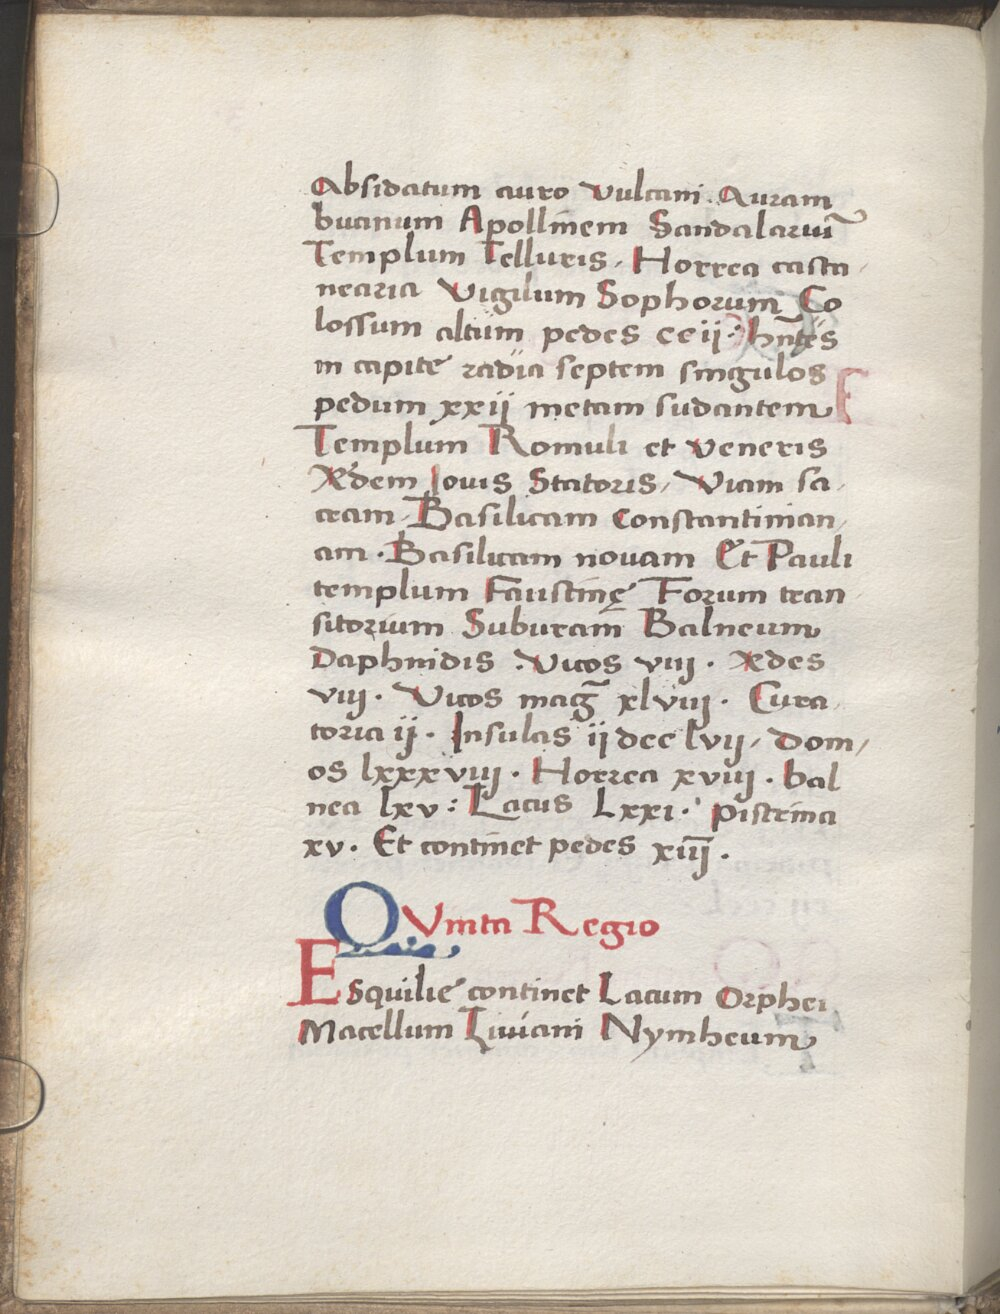 Absidatum auro Vulcani Auram
bucinum Apollinem Sandalariū
Templum Telluris, Horrea casta
nearia Vigilum Sophorum Co
lossum altum pedes ccij. hn̄tēs
in capite radia septem singulos
pedum xxij metam sudantem
Templum Romuli et veneris
Aedem Iouis Statoris, Viam sa
cram, Basilicam Constantinian,
am. Basilicam nouam Et Pauli
templum Faustinę Forum tran
sitorium Suburam Balneum
Daphnidis. Vicos viij. Aedes
viij. Vicos mag̃ xlviij. Cura,
toria ij. Insulas ij dcclvij, Dom,
os lxxxviij. Horrea xviij. bal
nea lxv: Lacus Lxxi. pistrina
xv. Et continet pedes xiij̅.
QVinta Regio
ESquilie continet Lacum Orphei
Macellum Liuiani Nymheum